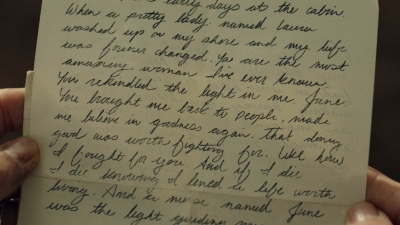 early days at the cabin.
When a pretty lady named Laura
washed up on my shore and my life
was forever changed. You are the most
amazing woman I've ever known.
You rekindled the light in me June.
You brought me back to people, made
me believe in goodness again. that doing
good was worth fighting for. like how
I fought for you. And if I die
I die knowing I lived a life worth
living. And a nurse named June
was the light guiding